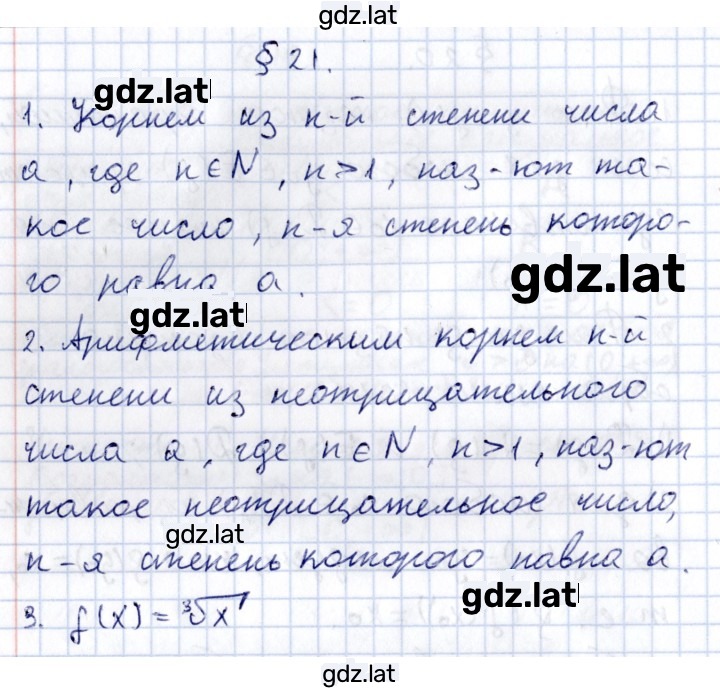 gdz.lat
§ 21.
gdz.lat
1. Корнем из n-й степени числа
a, где n∈N, n>1, наз-ют та-
кое число, n-я степень которо-
gdz.lat
го равна a.
gdz.lat
2. Арифметическим корнем n-й
степени из неотрицательного
числа a, где n∈N, n>1, наз-ют
такое неотрицательное число,
gdz.lat
n-я степень которого равна a.
gdz.lat
3. f(x) = ∛x
gdz.lat